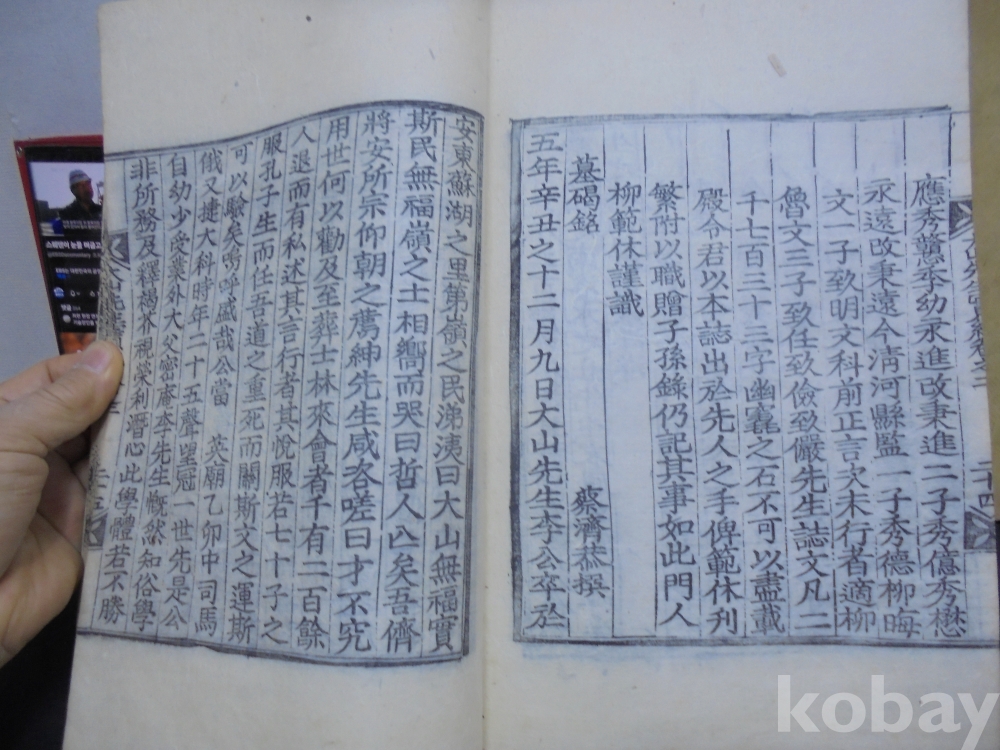 應秀蕙季幼永進改秉進二子秀億秀懋
永遠改秉遠今清河縣監一子秀德柳晦
文一子致明文科前正言次未行者適柳
魯文三子致任致儉致儼先生誌文凡二
千七百三十三字幽竁之石不可以盡載
殿令君以本誌出於先人之手俾範休刋
繁附以職贈子孫錄仍記其事如此門人
柳範休謹識
墓碣銘 蔡濟恭撰
五年辛丑之十二月九日大山先生李公卒於
安東蘇湖之里第嶺之民涕洟曰大山無福實
斯民無福嶺之士相嚮而哭曰哲人亾矣吾儕
將安所宗仰朝之薦紳先生咸咨嗟曰才不究
用世何以勸及至葬士林來會者千有二百餘
人退而有私述其言行者其悅服若七十子之
服孔子生而任吾道之重死而關斯文之運斯
可以驗矣嗚呼盛哉公當 英廟乙卯中司馬
俄又捷大科時年二十五聲望冠一世先是公
自幼少受業外大父密庵李先生慨然知俗學
非所務及釋褐芥視榮利潛心此學體若不勝
二十四
kobay